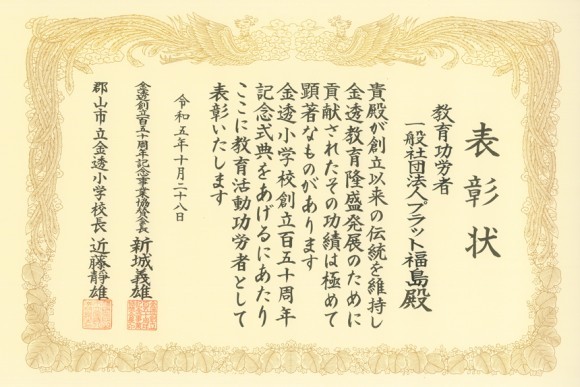 表彰状
教育功労者
一般社団法人プラット福島殿
貴殿が創立以来の伝統を維持し
金透教育隆盛発展のために
貢献されたその功績は極めて
顕著なものがあります
金透小学校創立百五十周年
記念式典をあげるにあたり
ここに教育活動功労者として
表彰いたします
令和五年十月二十八日
金透創立百五十周年記念事業協賛会長 新城義雄
郡山市立金透小学校長 近藤靜雄